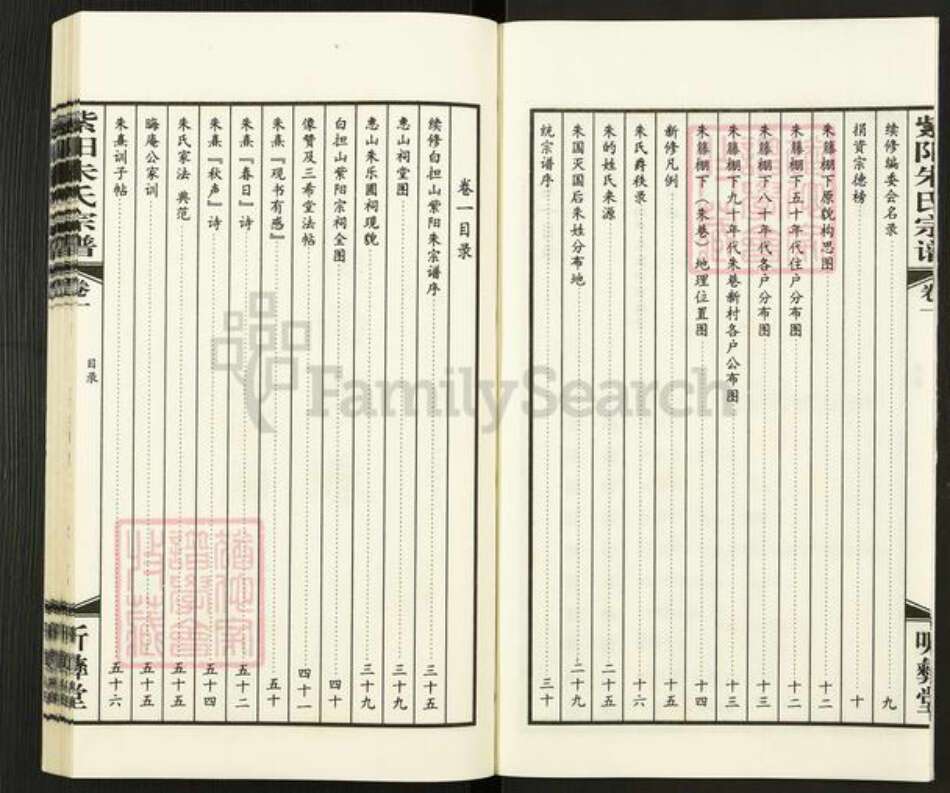 紫阳朱氏宗谱
卷一
续修编委会名录 九
捐资宗德榜 十
朱籐棚下原貌构思图 十二
朱籐棚下五十年代住户分布图 十二
朱籐棚下八十年代各户分布图 十三
朱籐棚下九十年代朱巷新村各户公布图 十三
朱籐棚下（朱巷）地理位置图 十四
新修凡例 十五
朱氏爵秩录 十六
朱的姓氏来源 二十五
朱国灭国后朱姓分布地 二十九
统宗谱序 三十
卷一目录
续修白担山紫阳朱宗谱序 三十五
惠山祠堂图 三十九
惠山朱乐圃祠现貌 三十九
白担山紫阳宗祠全图 四十
像赞及三希堂法帖 四十一
朱熹『观书有感』 五十
朱熹『春日』诗 五十二
朱熹『秋声』诗 五十四
朱氏家法 典范 五十五
晦庵公家训 五十五
朱熹训子帖 五十六
紫阳朱氏宗谱
卷一
目录
FamilySearch